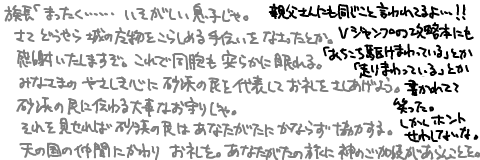 族長「まったく……いそがしい息子じゃ。
さて どうやら 城の宝物をこしらえる手伝いを なさったとか。
感謝いたしますぞ。これで同胞も安らかに眠れる。
みなさまの やさしき心に 砂漠の民を代表して お礼を さしあげよう。
砂漠の民に伝わる大事なお守りじゃ。
それを見せれば 砂漠の民は あなたがたに かならず 協力する。
天の国の仲間にかわり お礼を。あなたがたの旅に 神のご加護があらんことを。
親父さんにも同じこと言われてるよ…!!
Vジャンプの攻略本にも
「あちこち駆けまわっている」とか
「走りまわっている」とか
書かれてて
笑った。
しかしホント
せわしないな。